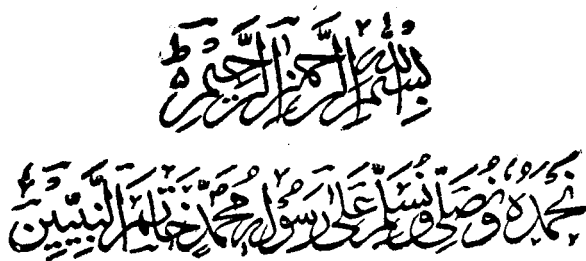 بِسْمِ اللهِ الرَّحْمٰنِ الرَّحِیْمِ ط
نَحْمَدُهٗ وَ نُصَلِّیْ وَ نُسَلِّمُ عَلٰی رَسُوْلِهٖ مُحَمَّدٍ خَاتَمِ النَّبِیِّیْنَ ط